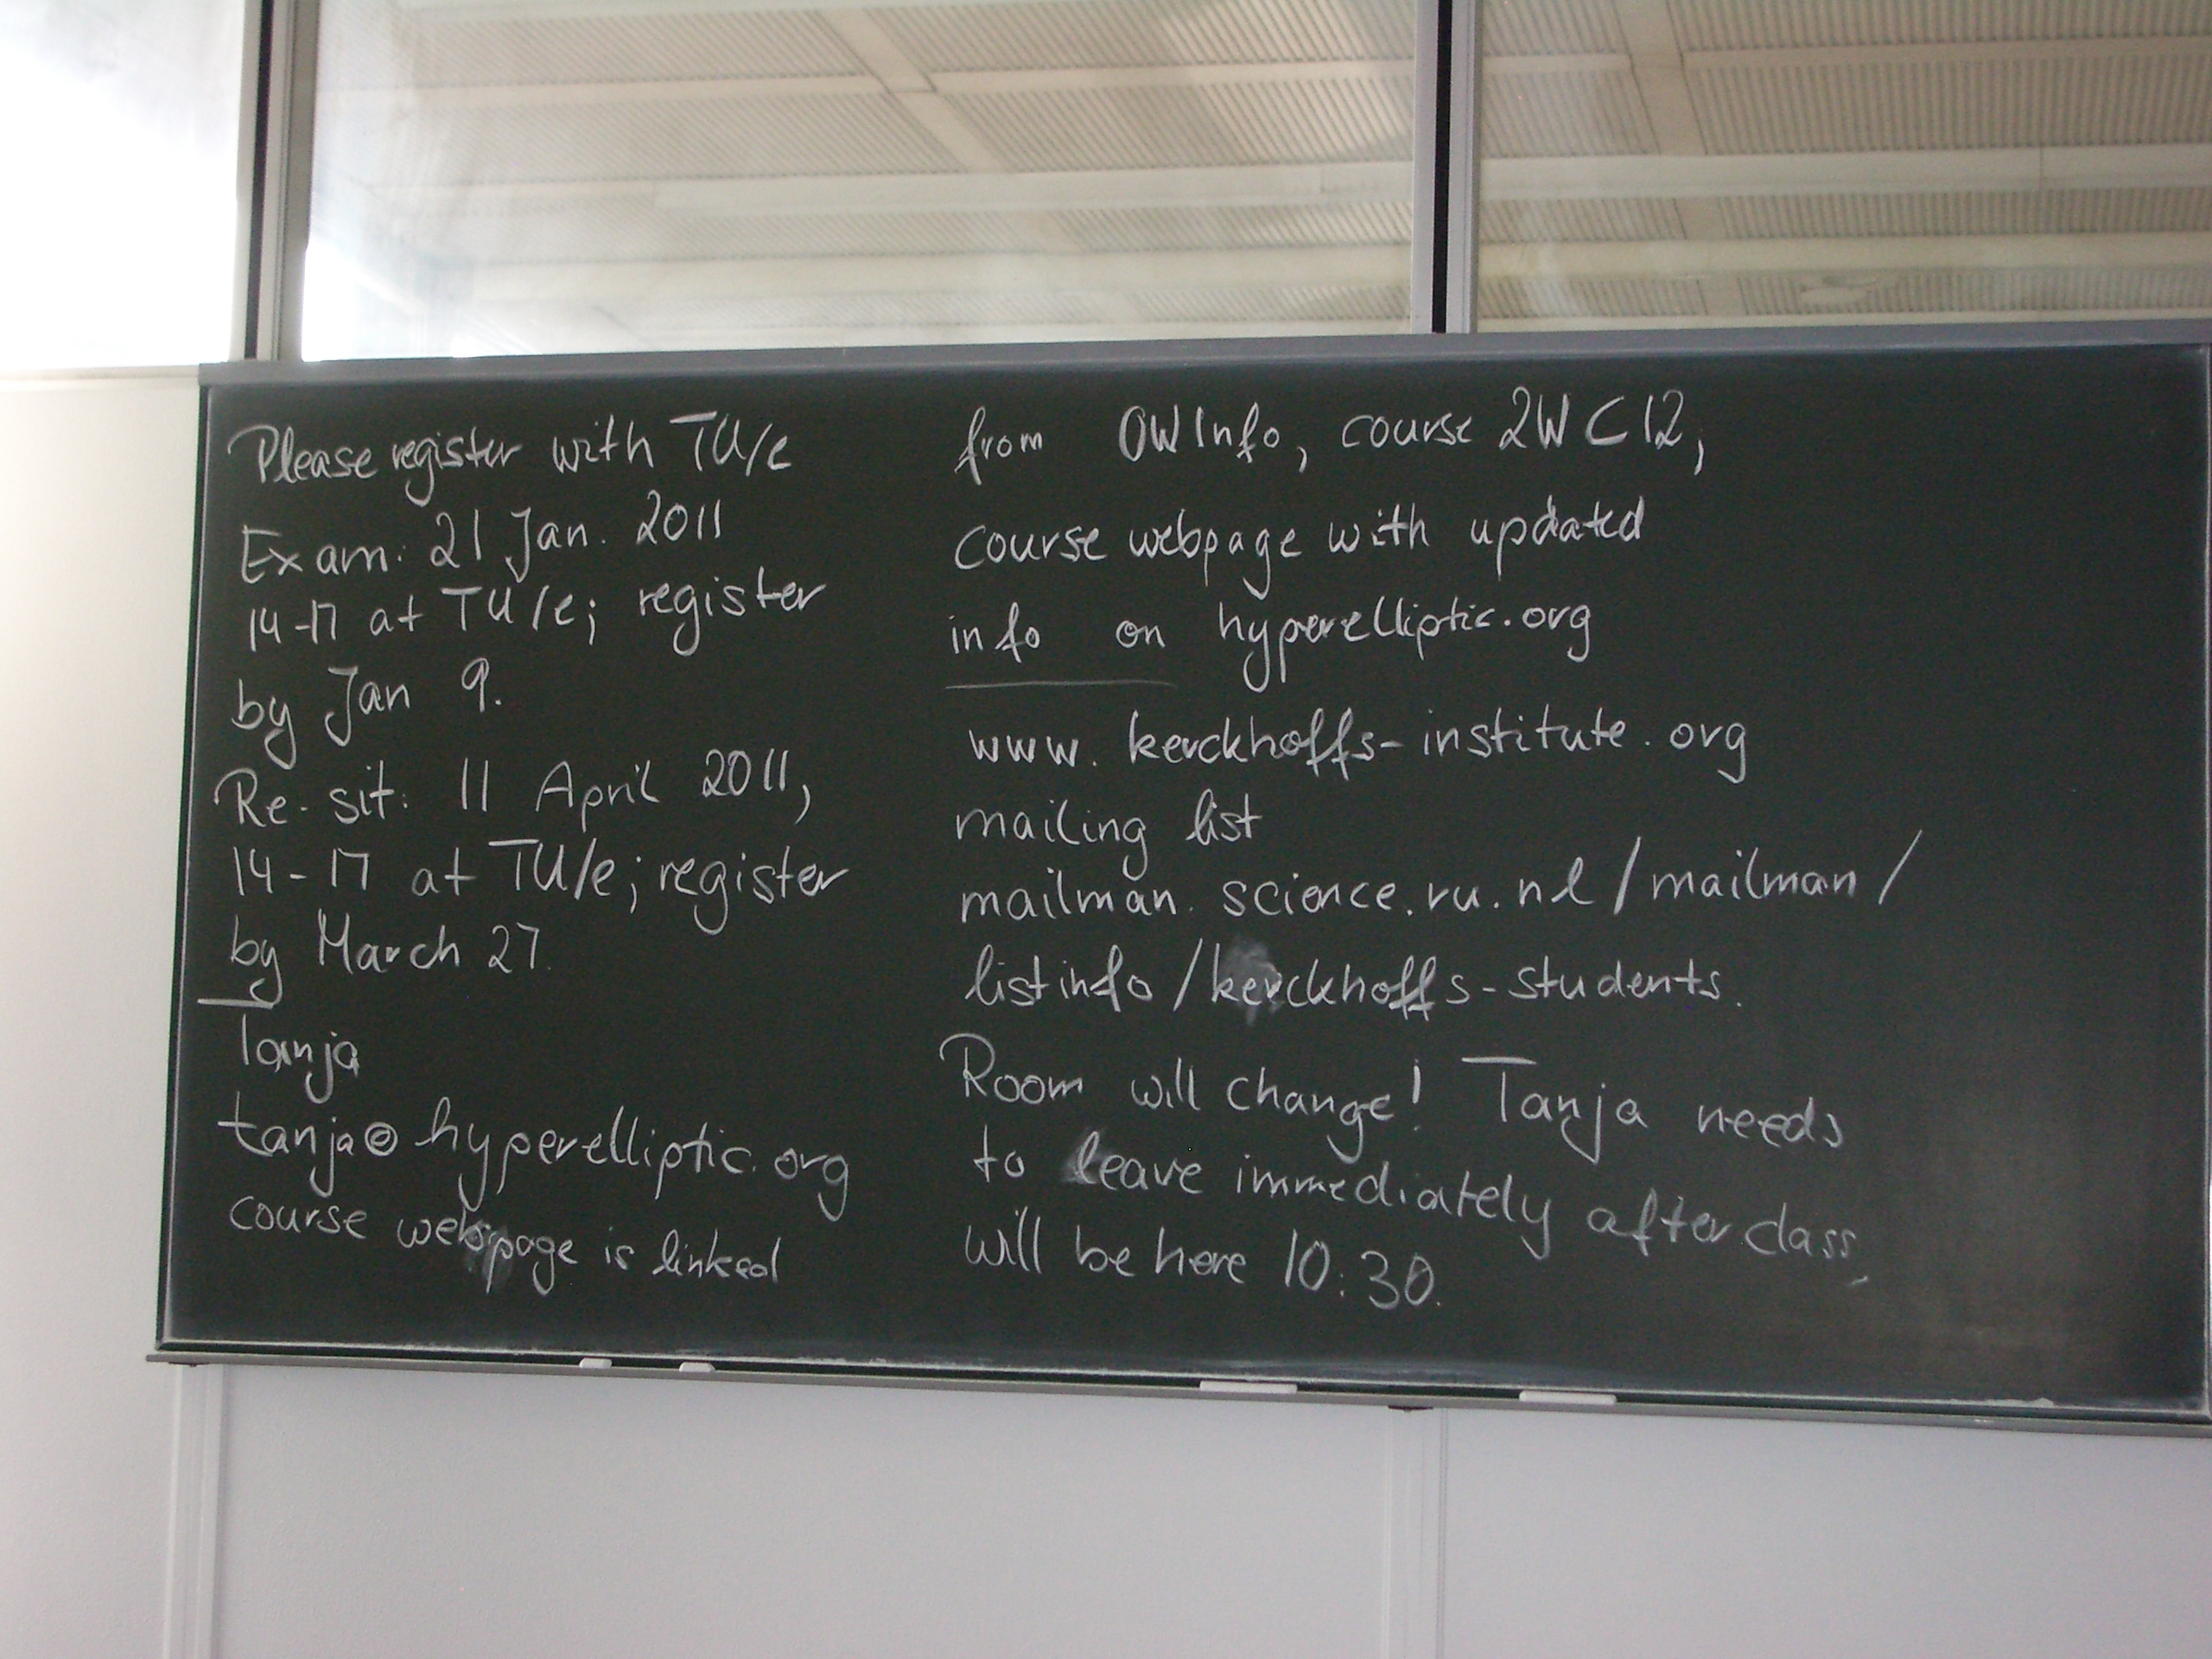 Please register with TU/e
Exam: 21 Jan. 2011
14-17 at TU/e; register
by Jan 9.
Re-sit: 11 April 2011,
14-17 at TU/e; register
by March 27.
Tanja
tanja@hyperelliptic.org
course webpage is linked
from OWInfo, course 2WC12,
course webpage with updated
info on hyperelliptic.org
www.kerckhoffs-institute.org
mailing list
mailman.science.ru.nl/mailman/
listinfo/kerckhoffs-students.
Room will change! Tanja needs
to leave immediately after class,
will be here 10:30.